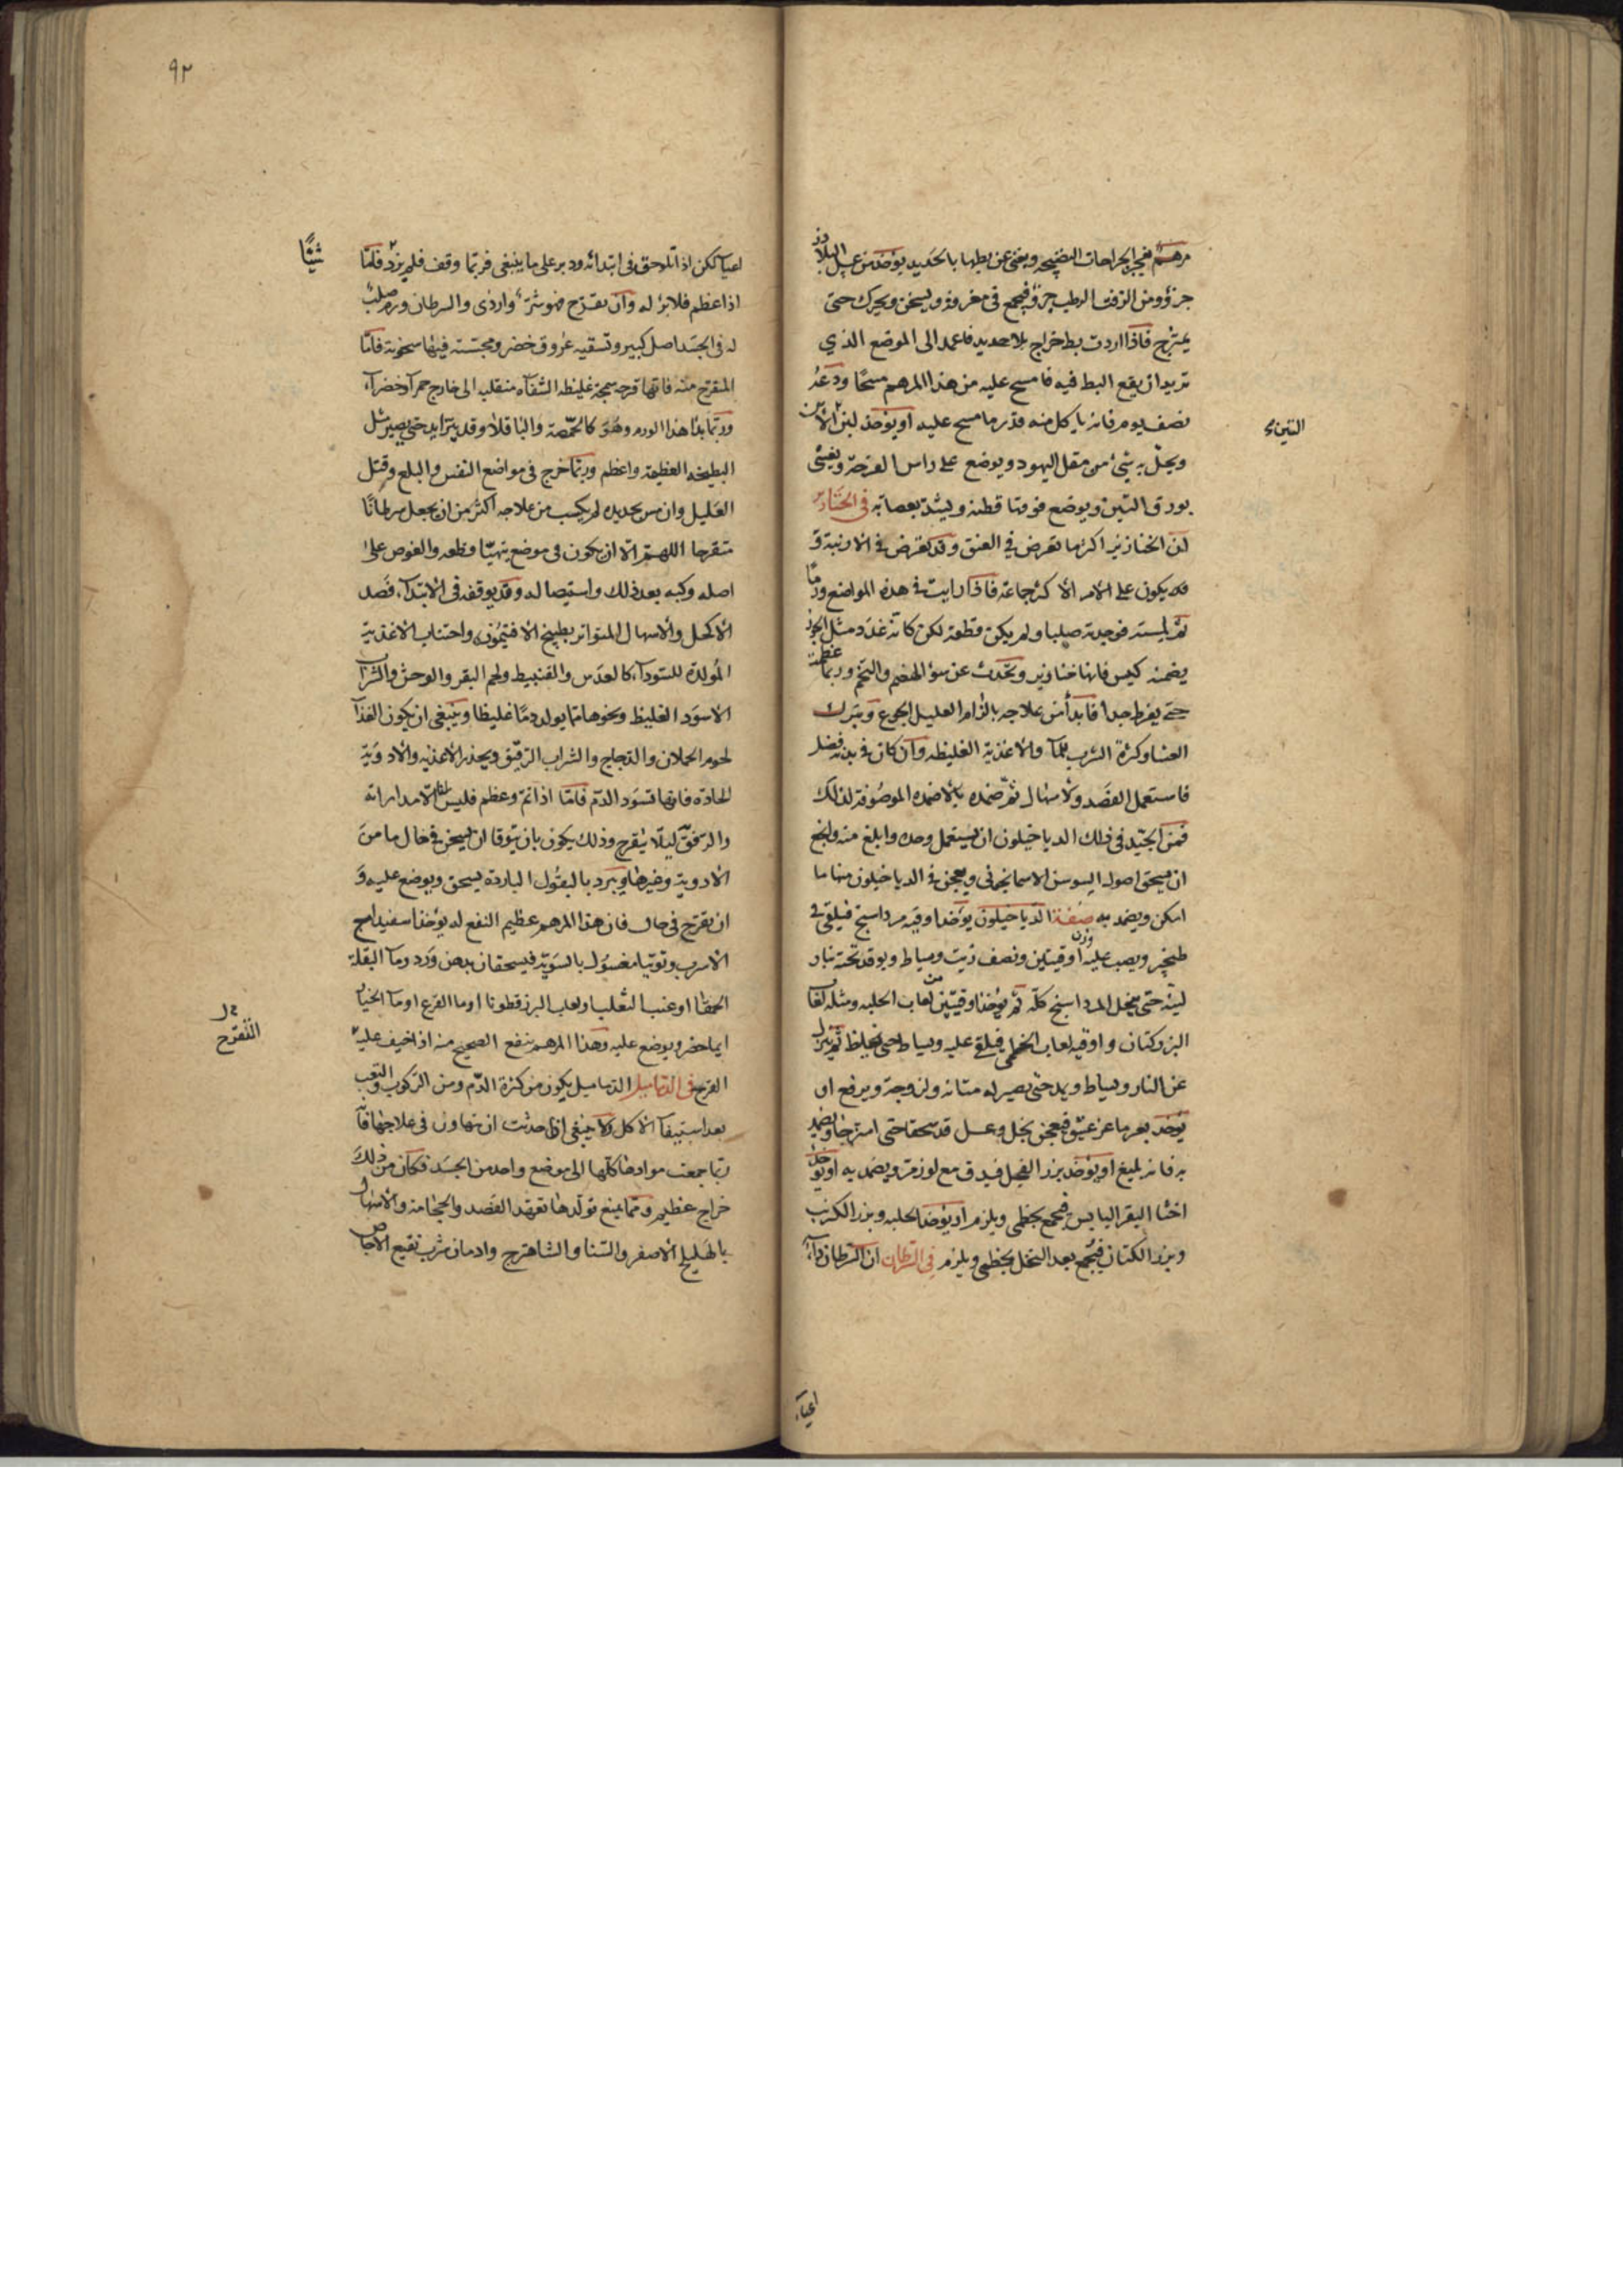 مرهم يفجر الجراحات النضيجه ويغنى عن بطها بالحديد يوخذ من عسل البلاذر
جزؤ ومن الزفت الرطب جزؤ فيجمع فى مغرفة ويسخن ويحرك حتى
يمتزج فاذا اردت بط خراج بلا حديد فاعمد الى الموضع الذي
تريد ان يقع البط فيه فامسح عليه من هذا المرهم مسحًا ودعه
نصف يوم فانه ياكل منه قدر ما مسح عليه او يوخذ لبن التين
التين
ويحل به شئ من مقل اليهود ويوضع على راس القرحة ويغشى
بورق التين ويوضع فوقها قطنة ويشد بعصابة فى الخنازير
ان الخنازير اكثر ما تعرض في العنق وقد تعرض في الاربية و
قد يكون على الامر الاكثر جماعة فاذا رايت في هذه المواضع ورمًا
ثم لمسته فوجدته صلبا ولم يكن قطعة لكن كانه غدد مثل الجوز
يضمنه كيس فانها خنازير وتحدث عن سوء الهضم والتخم وربما عظمت
حتى يفرط جدا فابدأ من علاجه بالزام العليل الجوع وبترك
العشا وكثرة الشرب للمآ والاغذية الغليظه وان كان في بدنه فضل
فاستعمل الفصد والاسهال ثم ضمده بالاضمده الموصوفة لذلك
فمن الجيد فى ذلك الدياخيلون ان يستعمل وحده وابلغ منه وانجع
ان يسحق اصول السوسن الاسمانجونى ويعجن في الدياخيلون منها ما
امكن ويضمد به صفة الدياخيلون يوخذ اوقيه مرداسنج فيلقى في
طنجير ويصب عليه وزن اوقيتين ونصف زيت ويساط ويوقد تحته بنار
لينه حتى ينحل المرداسنج كله ثم يوخذ اوقيتين من لعاب الحلبه ومثله لعاب
البزركتان واوقيه لعاب الخطمى فيلقى عليه ويساط حتى يغلظ ثم ينزل
عن النار ويساط ويمد حتى يصير له متانه ولزوجة ويرفع او
يوخذ بعر ماعز عتيق فيعجن بخل وعسل قد سحقا حتى امتزجا ويضمد
به فانه بليغ او يوخذ بزر الفجل فيدق مع لوز مر ويضمد به او يوخذ
اخثا البقر اليابس فيجمع بخطمى ويلزم او يوخذ الحلبه وبزر الكرنب
وبزر الكتان فيجمع بعد النخل بخطمى ويلزم فى السرطان ان السرطان دآء
اعيآ
٩٢
اعيآ لكن اذا تلوحق فى ابتدائه ودبر على ما ينبغى فربما وقف فلم يزد فاما
شيئًا
اذا عظم فلا برء له وان تقرح فهو شر واردى والسرطان ورم صلب
له فى الجسد اصل كبير وتسقيه عروق خضر ومجسته فيها سخونة فاما
المتقرح منه فانها قرحه سمجة غليظه الشفاه منقلبه الى خارج حمرآ وخضرآء
وربما بدا هذا الورم وهو كالحمصة والباقلا وقد يتزايد حتى يصير مثل
البطيخه العظيمة واعظم وربما خرج فى مواضع النفس والبلع وقتل
العليل وان مس بحديد لم يكسب من علاجه اكثر من ان يجعل سرطانًا
متقرحا اللهم الا ان يكون فى موضع يتهيّا قطعه والغوص على
اصله وكيه بعد ذلك واستيصاله وقد يوقفه فى الابتدآء فصد
الاكحل والاسهال المتواتر بطبيخ الافتيمون واجتناب الاغذية
المولدة للسودآء كالعدس والقنبيط ولحم البقر والوحش والشراب
الاسود الغليظ ونحوها مما يولد دمًا غليظا وينبغى ان يكون الغذآ
لحوم الحملان والدجاج والشراب الرقيق ويحذر الاغذيه والادوية
الحاده فانها تسود الدم فاما اذا تم وعظم فليس الا مداراته
والرفق ليلا يتقرح وذلك يكون بان يتوقا ان يسخن فى حال ما من
الادوية وغيرها ويبرد بالبقول البارده يسحق ويوضع عليه و
ان تقرح فى حال فان هذا المرهم عظيم النفع له يوخذ اسفيداج
الاسرب وتوتيا مغسول بالسوية فيسحقان بدهن ورد ومآ البقلة
الحمقا او عنب الثعلب ولعاب البزرقطونا او ما القرع او مآ الخيار
ايما حضر ويوضع عليه وهذا المرهم ينفع الصحيح منه اذا خيف عليه
التقرح
القرح فى الدماميل الدماميل يكون من كثرة الدم ومن الركوب والتعب
بعد استيفآ الاكل ولا ينبغى اذا حدثت ان تتهاون فى علاجها فانه
ربما جمعت موادها كلها الى موضع واحد من الجسد فكان من ذلك
خراج عظيم ومما يمنع تولدها تعهد الفصد والحجامه والاسهال
بالهليلج الاصفر والسنا والشاهترج وادمان شرب نقيع الاجاص